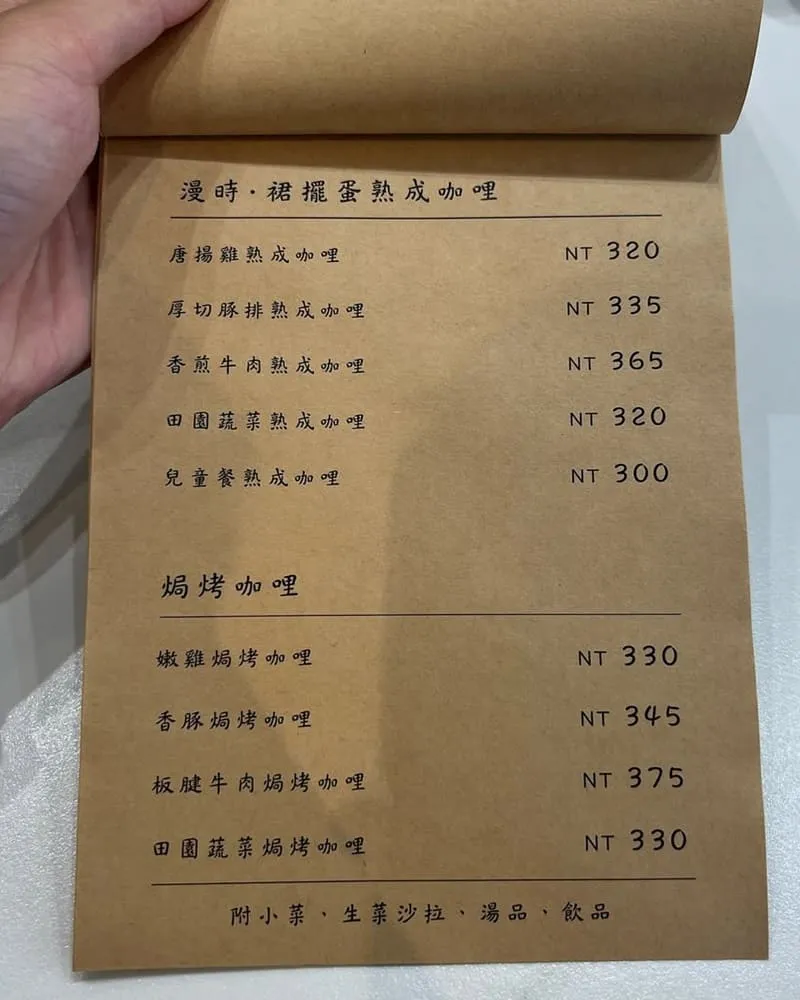 漫時·裙擺蛋熟成咖哩
唐揚雞熟成咖哩 NT 320
厚切豚排熟成咖哩 NT 335
香煎牛肉熟成咖哩 NT 365
田園蔬菜熟成咖哩 NT 320
兒童餐熟成咖哩 NT 300
焗烤咖哩
嫩雞焗烤咖哩 NT 330
香豚焗烤咖哩 NT 345
板腱牛肉焗烤咖哩 NT 375
田園蔬菜焗烤咖哩 NT 330
附小菜、生菜沙拉、湯品、飲品